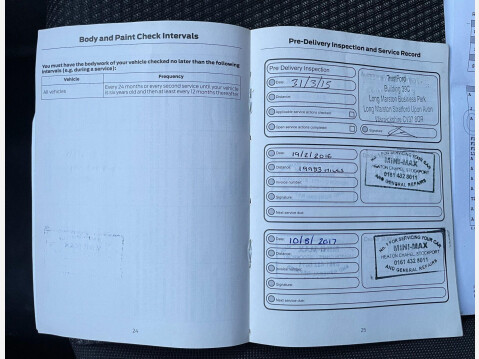 Body and Paint Check Intervals
You must have the bodywork of your vehicle checked no later than the following
intervals (e.g. during a service):
Vehicle Frequency
All vehicles Every 24 months or every second service until your vehicle
is six years old and then at least every 12 months thereafter
24
Pre-Delivery Inspection and Service Record
Pre Delivery Inspection
Date: 31/3/15
Distance:
Applicable service actions checked:
Open service actions completed:
Signature:
Building 39C
Long Marston Business Park
Long Marston Stratford Upon Avon
Warwickshire CV37 8QR
Date: 19/2/2016
Distance: 19993 miles
Invoice number:
Signature:
Next service due:
No. 1 FOR SERVICING YOUR CAR
MINI-MAX
HEATON CHAPEL, STOCKPORT
0161 432 8011
AND GENERAL REPAIRS
Date: 10/5/2017
Distance:
Invoice number:
Signature:
Next service due:
No. 1 FOR SERVICING YOUR CAR
MINI-MAX
HEATON CHAPEL, STOCKPORT
0161 432 8011
AND GENERAL REPAIRS
25